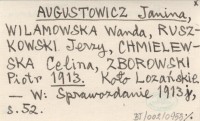 AUGUSTOWICZ Janina,
WILAMOWSKA Wanda, RUSZ-
KOWSKI Jerzy, CHMIELEW-
SKA Celina, ZBOROWSKI
Piotr 1913. Koło Lozańskie.
— W: Sprawozdanie 1913,
s. 52.